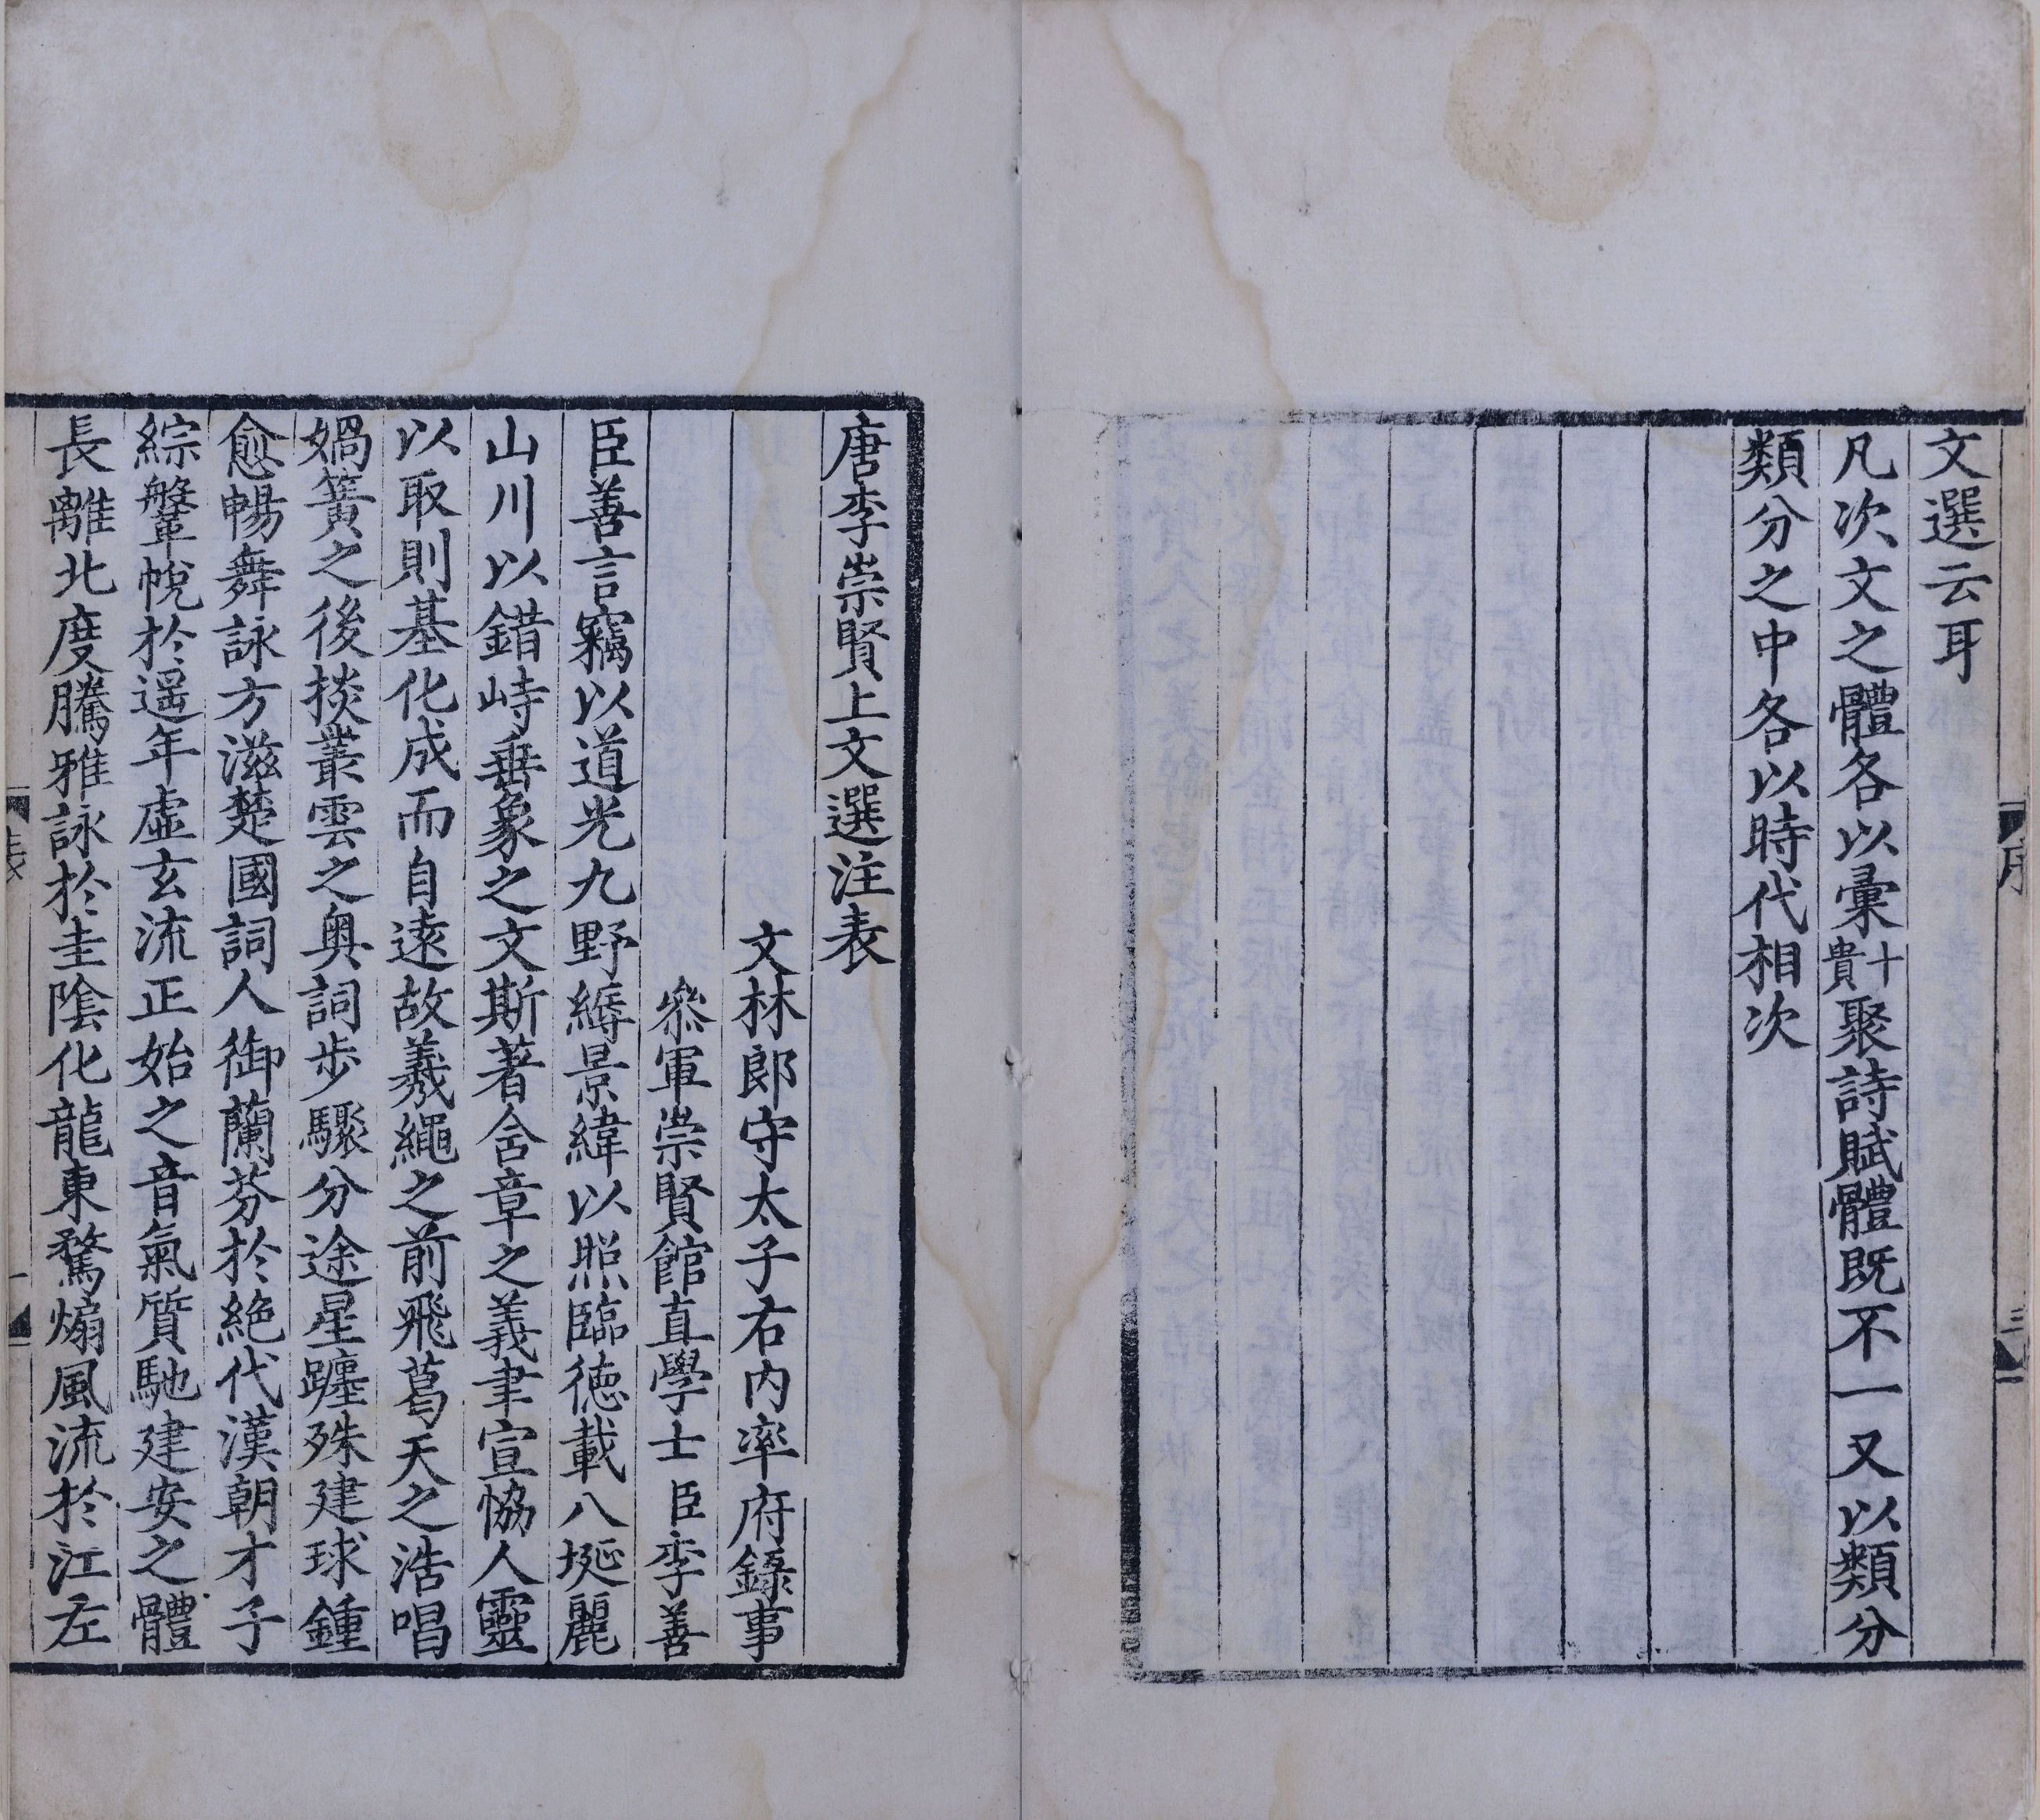 文選云耳
凡次文之體各以彙十貴聚詩賦體既不一又以類分
類分之中各以時代相次
序
三
唐李崇賢上文選注表
文林郎守太子右内率府錄事
叅軍崇賢館直學士臣李善
臣善言竊以道光九野縟景緯以照臨德載八埏麗
山川以錯峙垂象之文斯著含章之義聿宣恊人靈
以取則基化成而自遠故羲繩之前飛葛天之浩唱
媧簧之後掞叢雲之奥詞步驟分途星躔殊建球鍾
愈暢舞詠方滋楚國詞人御蘭芬於絶代漢朝才子
綜鞶帨於遥年虛玄流正始之音氣質馳建安之體
長離北度騰雅詠於圭陰化龍東鶩煽風流於江左
表
一